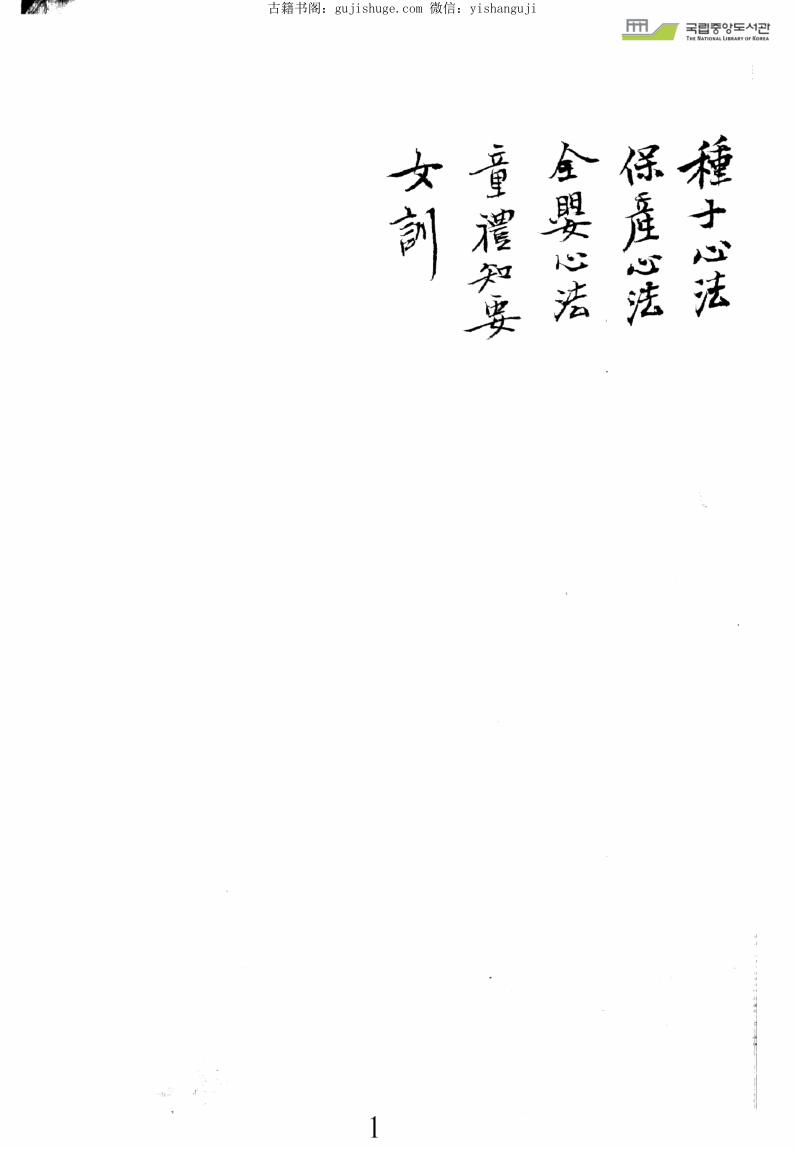 古籍书阁：gujishuge.com 微信：yishanguji
국립중앙도서관
THE NATIONAL LIBRARY OF KOREA
種子心法
保產心法
全嬰心法
童禮知要
女訓
1